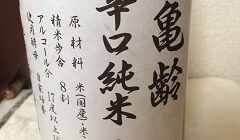 亀齢
辛口純米
原材料 米(国産)・米
精米歩合 8割
アルコール分 17度以上
使用酵母